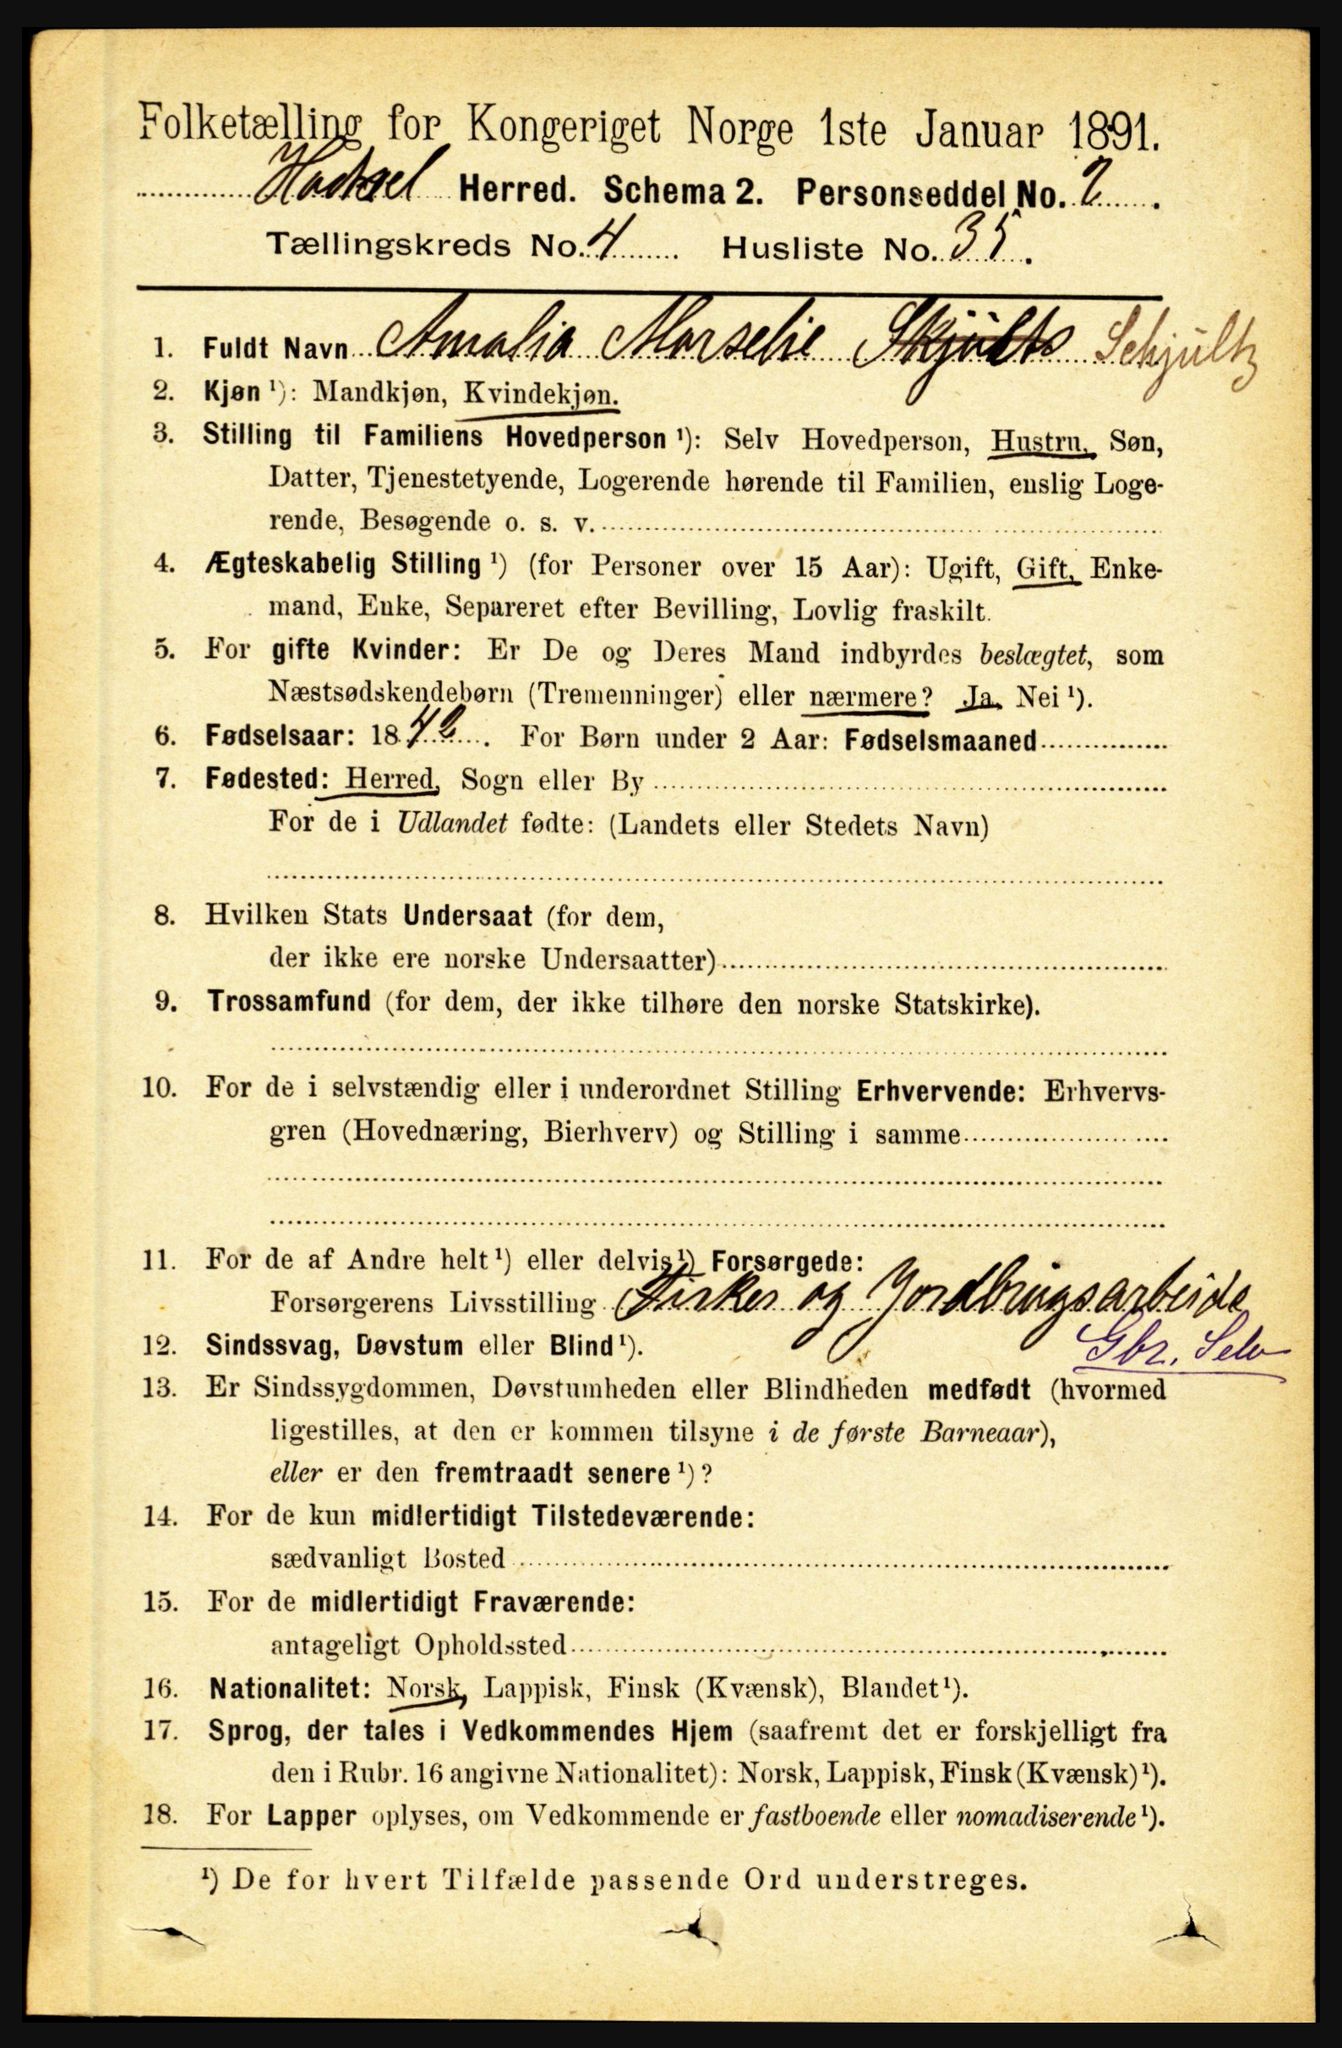 Folketælling for Kongeriget Norge 1ste Januar 1891.
Hadsel Herred. Schema 2. Personseddel No. 2.
Tællingskreds No. 4. Husliste No. 35.
1. Fuldt Navn Amalia Marselie Skjults Schjültz
2. Kjøn ¹): Mandkjøn, Kvindekjøn.
3. Stilling til Familiens Hovedperson ¹): Selv Hovedperson, Hustru, Søn,
Datter, Tjenestetyende, Logerende hørende til Familien, enslig Loge-
rende, Besøgende o. s. v.
4. Ægteskabelig Stilling ¹) (for Personer over 15 Aar): Ugift, Gift, Enke-
mand, Enke, Separeret efter Bevilling, Lovlig fraskilt.
5. For gifte Kvinder: Er De og Deres Mand indbyrdes beslægtet, som
Næstsødskendebørn (Tremenninger) eller nærmere? Ja, Nei ¹).
6. Fødselsaar: 1842. For Børn under 2 Aar: Fødselsmaaned
7. Fødested: Herred, Sogn eller By
For de i Udlandet fødte: (Landets eller Stedets Navn)
8. Hvilken Stats Undersaat (for dem,
der ikke ere norske Undersaatter)
9. Trossamfund (for dem, der ikke tilhøre den norske Statskirke).
10. For de i selvstændig eller i underordnet Stilling Erhvervende: Erhvervs-
gren (Hovednæring, Bierhverv) og Stilling i samme
11. For de af Andre helt ¹) eller delvis ¹) Forsørgede:
Forsørgerens Livsstilling Fisker og Jordbrugsarbeide
12. Sindssvag, Døvstum eller Blind ¹). Gbr. Selv
13. Er Sindssygdommen, Døvstumheden eller Blindheden medfødt (hvormed
ligestilles, at den er kommen tilsyne i de første Barneaar),
eller er den fremtraadt senere ¹)?
14. For de kun midlertidigt Tilstedeværende:
sædvanligt Bosted
15. For de midlertidigt Fraværende:
antageligt Opholdssted
16. Nationalitet: Norsk, Lappisk, Finsk (Kvænsk), Blandet ¹).
17. Sprog, der tales i Vedkommendes Hjem (saafremt det er forskjelligt fra
den i Rubr. 16 angivne Nationalitet): Norsk, Lappisk, Finsk (Kvænsk) ¹).
18. For Lapper oplyses, om Vedkommende er fastboende eller nomadiserende ¹).
¹) De for hvert Tilfælde passende Ord understreges.